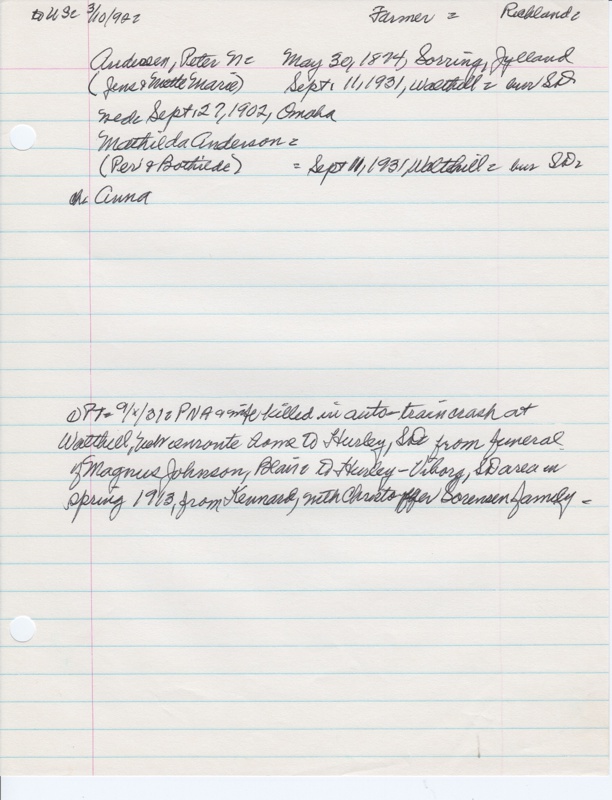 to USc 3/10/92= Farmer = Richland=
Andersen, Peter N= May 30, 1874, Sorring, Jylland
(Jens & Mette Marie) Sept. 11, 1931, Walthill = bur SD=
md= Sept. 27, 1902, Omaha
Mathilda Anderson =
(Per & Bothilde) = Sept 11, 1931, Walthill = bur SD=
ch. Anna
DPT= 9/ /31= PNA & wife killed in auto-train crash at
Walthill, enroute home to Hurley, SD= from funeral
of Magnus Johnson, Blair= to Hurley-Viborg, SD area in
spring 1913, from Kennard, with Christoffer Sorensen family =